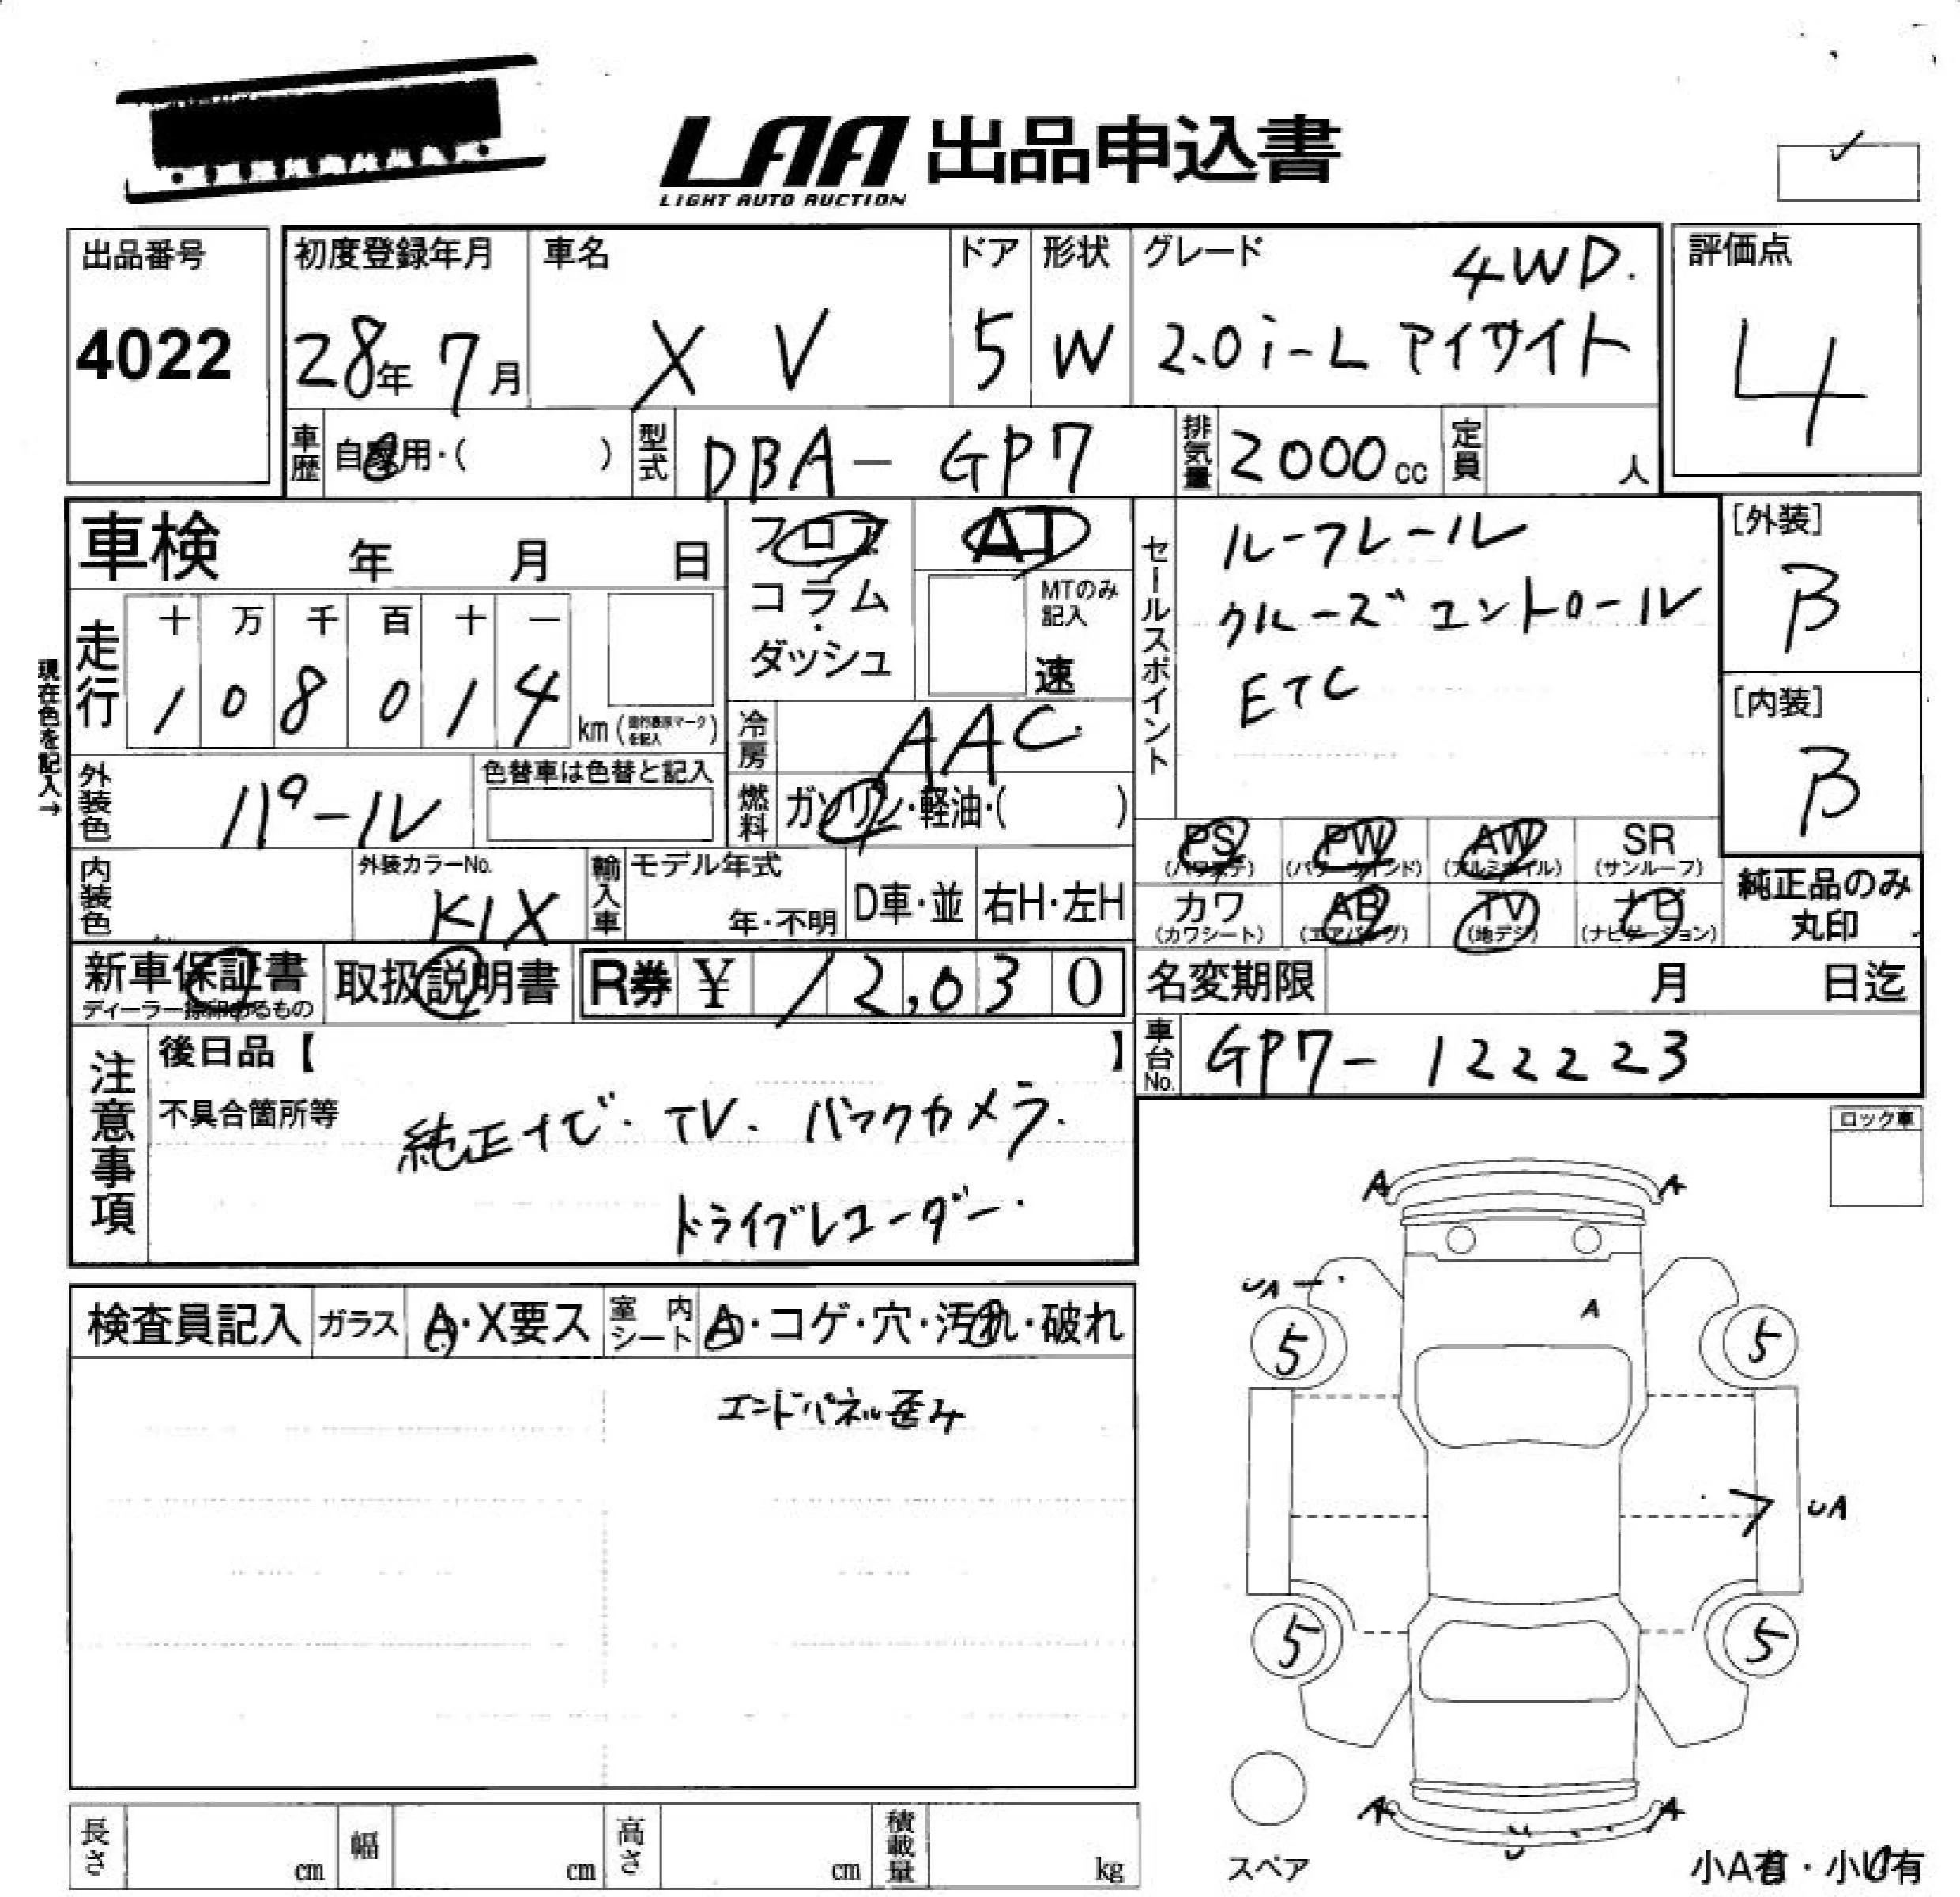 LAA 出品申込書
LIGHT AUTO AUCTION
出品番号
4022
初度登録年月
28年 7月
車名
X V
ドア
5
形状
W
グレード
4WD.
2.0i-L アイサイト
評価点
4
車歴
自家用・( )
型式
DBA-GP7
排気量
2000cc
定員
人
車検 年 月 日
フロア
コラム
・
ダッシュ
AT
MTのみ
記入
速
セールスポイント
ルーフレール
クルーズコントロール
ETC
[外装]
B
[内装]
B
現在色を記入→
走行
十 万 千 百 十 一
1 0 8 0 1 4
km (走行表示マーク
を記入)
冷房
AAC
外装色
パール
色替車は色替と記入
燃料
ガソリン・軽油・( )
PS
(パワステ)
PW
(パワーウインド)
AW
(アルミホイル)
SR
(サンルーフ)
内装色
外装カラーNo.
K1X
輸入車
モデル年式
年・不明
D車・並
右H・左H
カワ
(カワシート)
AB
(エアバッグ)
TV
(地デジ)
ナビ
(ナビゲーション)
純正品のみ
丸印
新車保証書
ディーラー捺印のあるもの
取扱説明書
R券 ¥ 12,030
名変期限 月 日迄
車台No.
GP7-122223
注意事項
後日品【 】
不具合箇所等
純正ナビ・TV. バックカメラ.
ドライブレコーダー.
ロック車
検査員記入
ガラス
A・X要ス
室内
シート
A・コゲ・穴・汚れ・破れ
エンドパネル歪み
A A
UA
A
5 5
UA
5 5
A A
U
スペア
小A有・小U有
長さ cm
幅 cm
高さ cm
積載量 kg